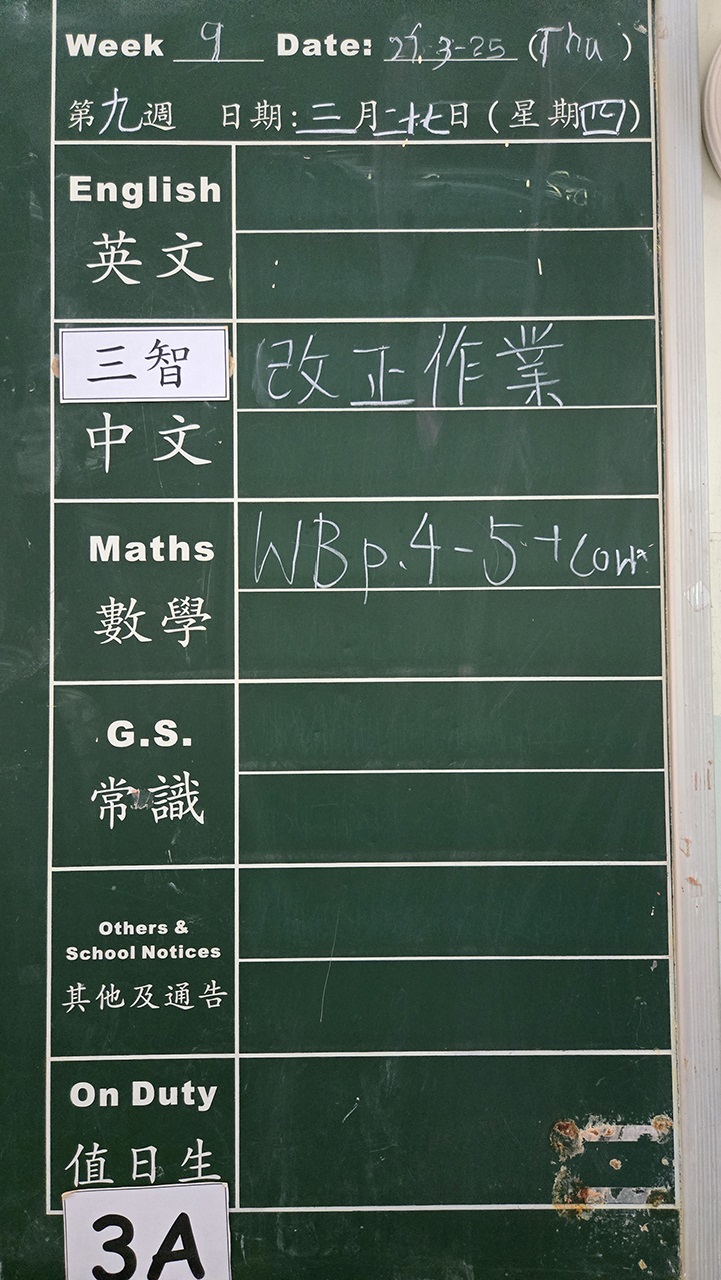 Week 9 Date: 27.3-25 (Thu)
第九週 日期:三月二十七日(星期四)
English
英文
三智 改正作業
中文
Maths WB p.4-5 + corr
數學
G.S.
常識
Others &
School Notices
其他及通告
On Duty
值日生
3A